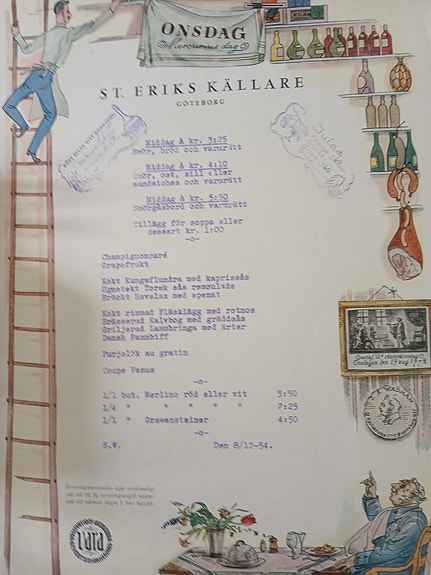 ONSDAG
Mercurius dag
ST. ERIKS KÄLLARE
GÖTEBORG
Middag à kr. 3:25
Smör, bröd och varmrätt
Middag à kr. 4:10
Smör, ost, sill eller
sandwiches och varmrätt
Middag à kr. 5:50
Smörgåsbord och varmrätt
Tillägg för soppa eller
dessert kr. 1:00
-o-
Champignonpuré
Grapefrukt
Kokt Kungsflundra med kaprissås
Ugnstekt Torsk sås remoulade
Bräckt Havslax med spenat
Kokt rimmad Fläsklägg med rotmos
Brässerad Kalvbog med gräddsås
Griljerad Lammbringa med ärter
Dansk Pannbiff
Purjolök au gratin
Coupe Venus
-o-
1/1 but. Merlino röd eller vit 5:50
1/4 " " " " " 2:25
1/1 " Gravensteiner 4:50
-o-
S.W. Den 8/12-54.
Gustaf III:s
Onsdagen den 19 aug. 1772
WASMAN
vara